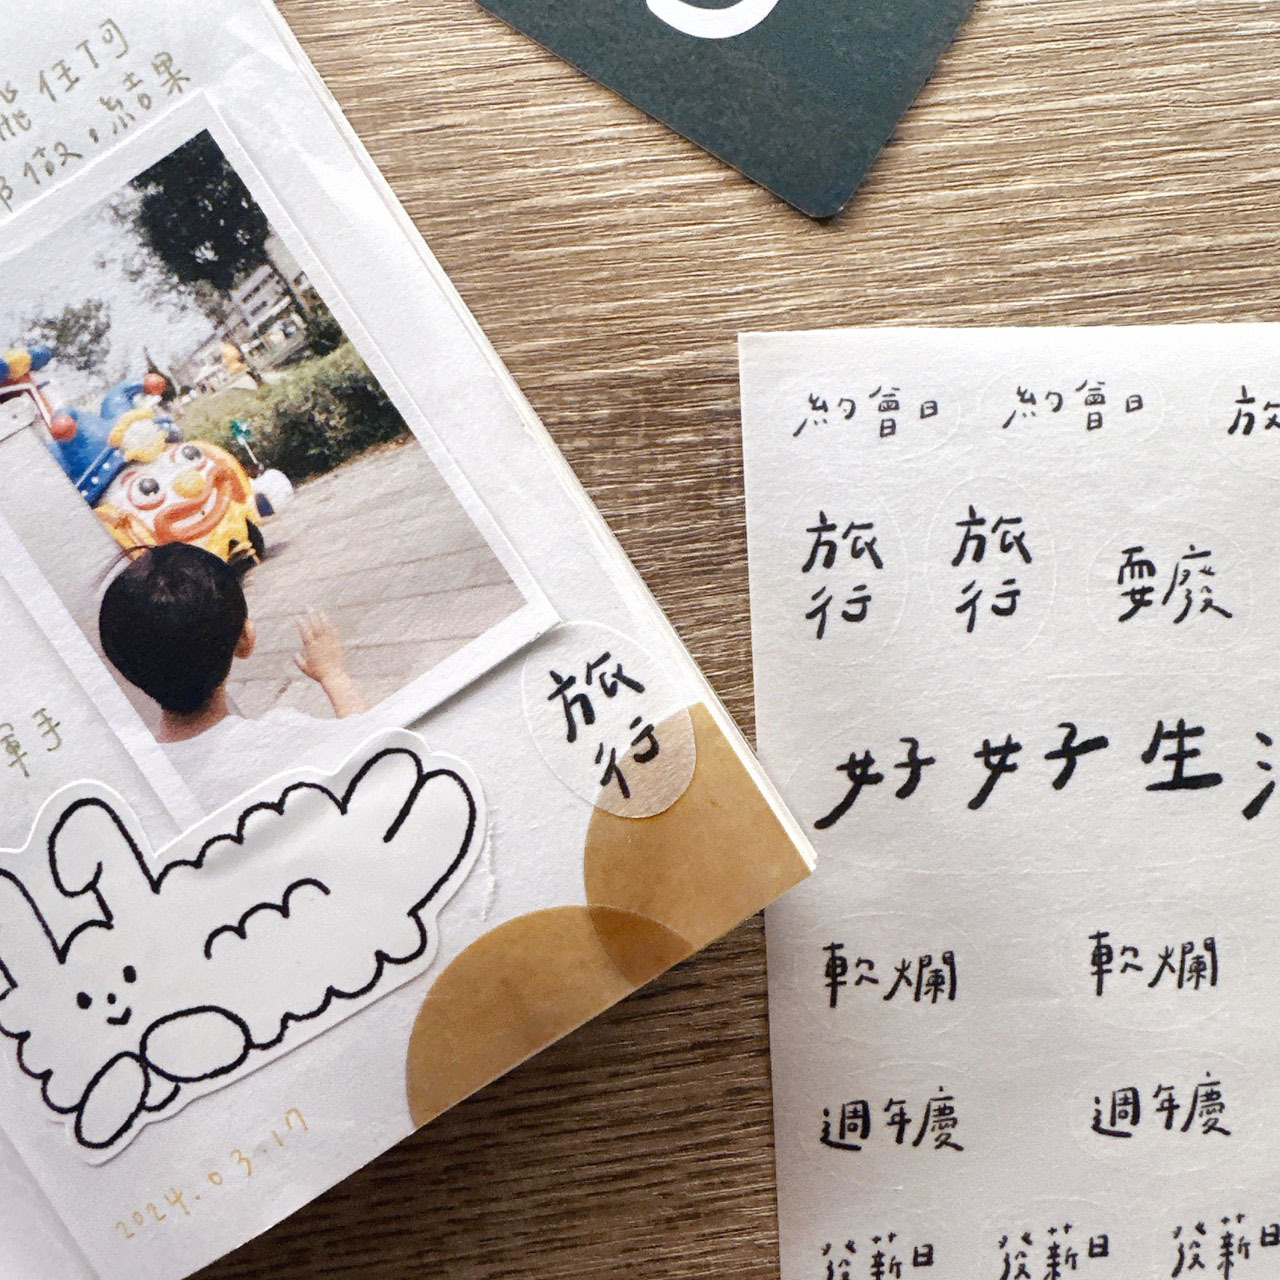 能任何
都做，結果
軍手
旅
行
2024.03.17
約會日 約會日
旅行 旅行 耍廢
好好生活
軟爛 軟爛
週年慶 週年慶
發薪日 發薪日 發薪日